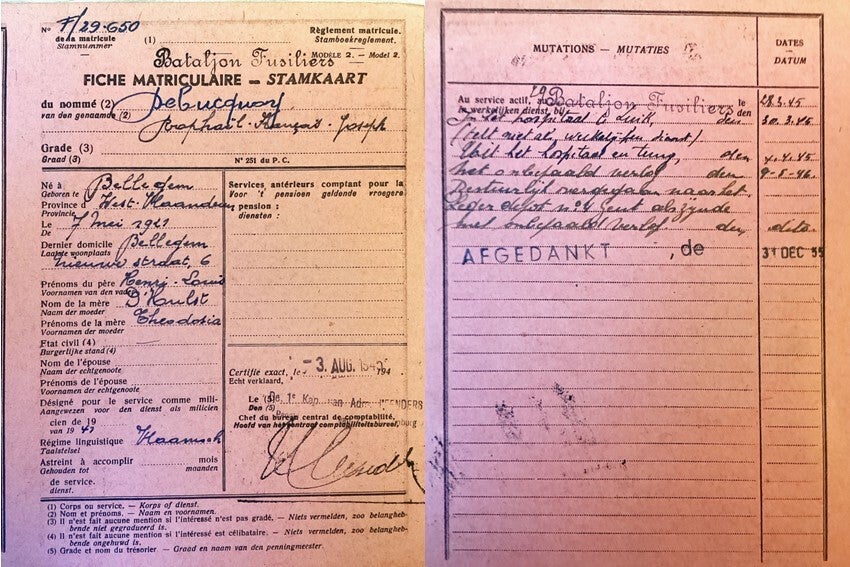 N° F/29.650
de la matricule
Stamnummer
(1)
Règlement matricule.
Stamboekreglement.
MODÈLE 2. - Model 2.
Bataljon Fusiliers
FICHE MATRICULAIRE — STAMKAART
du nommé (2) Debucquoy
van den genaamde (2) Raphaël-Joseph
Grade (3)
Graad (3)
N° 251 du P. C.
Né à Bellegem
Geboren te
Province d West-Vlaanderen
Provincie
Le 7 Mei 1921
De
Dernier domicile Bellegem
Laatste woonplaats
Nieuwe straat, 6
Prénoms du père Henri-Louis
Voornamen van den vader
Nom de la mère D'Hulst
Naam der moeder
Prénoms de la mère Theodosia
Voornamen der moeder
Etat civil (4) —
Burgerlijke stand (4)
Nom de l'épouse
Naam der echtgenoote
Prénoms de l'épouse
Voornamen der echtgenoote
Désigné pour le service comme mili-
Aangewezen voor den dienst als milicien
cien de 19
van 19 41
Régime linguistique Vlaamsch
Taalstelsel
Astreint à accomplir mois
Gehouden tot maanden
de service.
dienst.
Services antérieurs comptant pour la
Voor 't pensioen geldende vroegere
pension :
diensten :
Certifié exact, le - 3 AUG. 194
Echt verklaard,
Le (5) De 1e Kap van Adm
Den (5)
Chef du bureau central de comptabilité,
Hoofd van het centraal comptabiliteitsbureel,
(1) Corps ou service. — Korps of dienst.
(2) Nom et prénoms. — Naam en voornamen.
(3) Il n'est fait aucune mention si l'intéressé n'est pas gradé. — Niets vermelden, zoo belangheb-
bende niet gegradueerd is.
(4) Il n'est fait aucune mention si l'intéressé est célibataire. — Niets vermelden, zoo belangheb-
bende ongehuwd is.
(5) Grade et nom du trésorier. — Graad en naam van den penningmeester.
MUTATIONS — MUTATIES
DATES
—
DATUM
Au service actif, au 29 Bataljon Fusiliers le 28.3.45
In werkelijken dienst, bij den
In het hospitaal te Luik, den 30.3.45
(telt niet als werkelijken dienst)
Uit het hospitaal en terug, den 4.4.45
Met onbepaald verlof den 9-5-46.
Bestuurlijk overgegaan naar het
Leger depot n°4 Gent alszijnde
met onbepaald verlof den dito.
AFGEDANKT, de 31 DEC 55